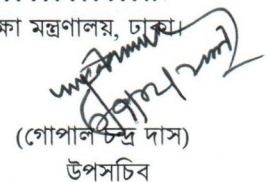 ক্ষা মন্ত্রণালয়, ঢাকা।
(গোপাল চন্দ্র দাস)
উপসচিব